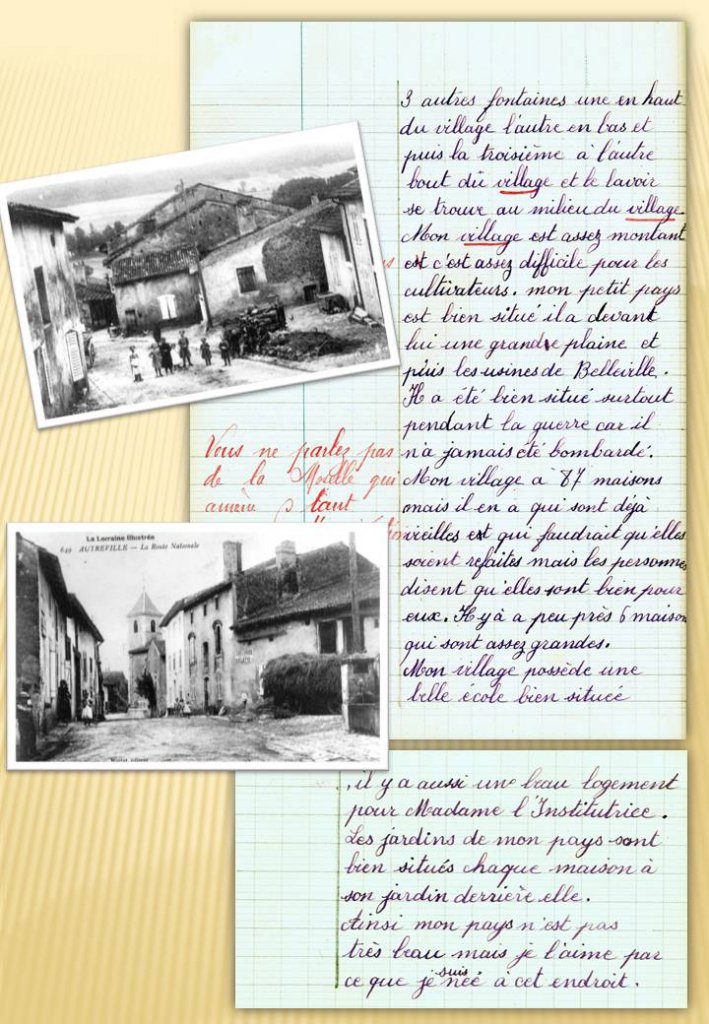 3 autres fontaines une en haut
du village l'autre en bas et
puis la troisième à l'autre
bout du village et le lavoir
se trouve au milieu du village.
Mon village est assez montant
est c'est assez difficile pour les
cultivateurs. mon petit pays
est bien situé il a devant
lui une grande plaine et
puis les usines de Belleville.
Il a été bien situé surtout
pendant la guerre car il
n'a jamais été bombardé.
Mon village a 87 maisons
mais il en a qui sont déjà
vieilles est qui faudrait qu'elles
soient refaites mais les personnes
disent qu'elles sont bien pour
eux. Il y à a peu près 6 maison
qui sont assez grandes.
Mon village possède une
belle école bien située
Vous ne parlez pas
de la Moselle qui
amène tant
La Lorraine Illustrée
649 AUTREVILLE — La Route Nationale
, il y a aussi une beau logement
pour Madame l'Institutrice.
Les jardins de mon pays sont
bien situés chaque maison à
son jardin derrière elle.
Ainsi mon pays n'est pas
très beau mais je l'aime par
ce que je suis née à cet endroit.